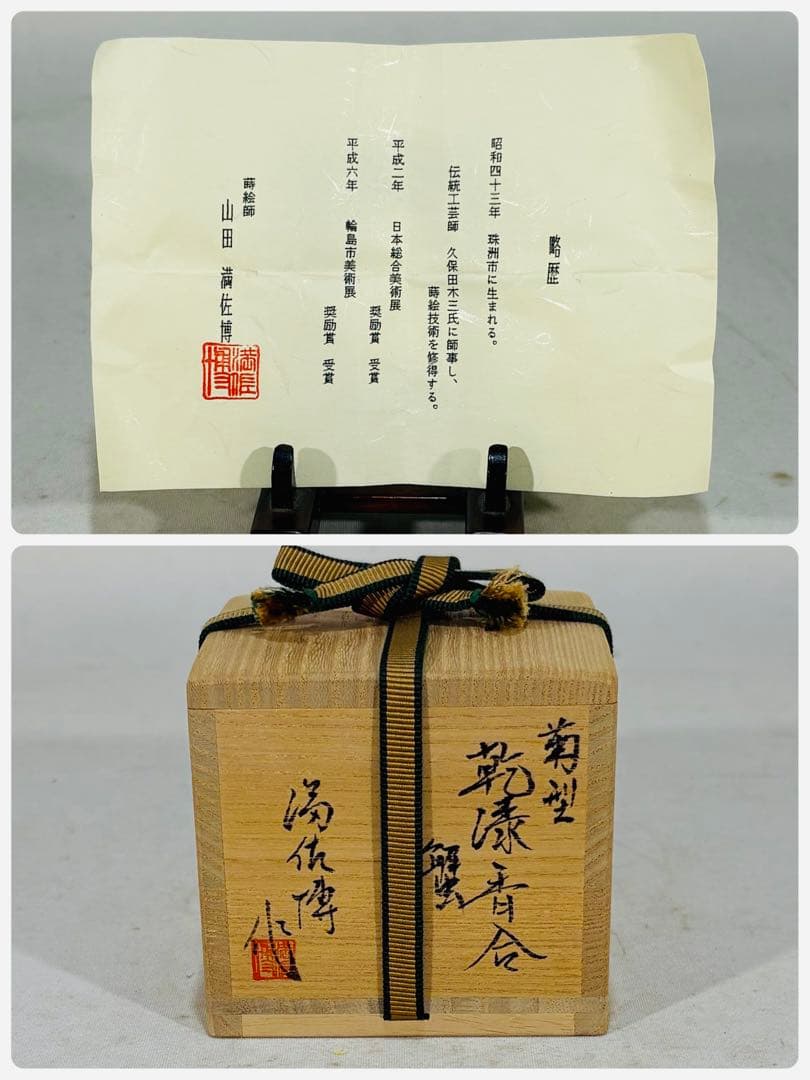 略歴
昭和四十三年 珠洲市に生まれる。
伝統工芸師 久保田木三氏に師事し、
蒔絵技術を修得する。
平成二年 日本総合美術展
奨励賞 受賞
平成六年 輪島市美術展
奨励賞 受賞
蒔絵師
山田 満佐博
満佐博
菊型
乾漆香合
蟹
満佐博
作